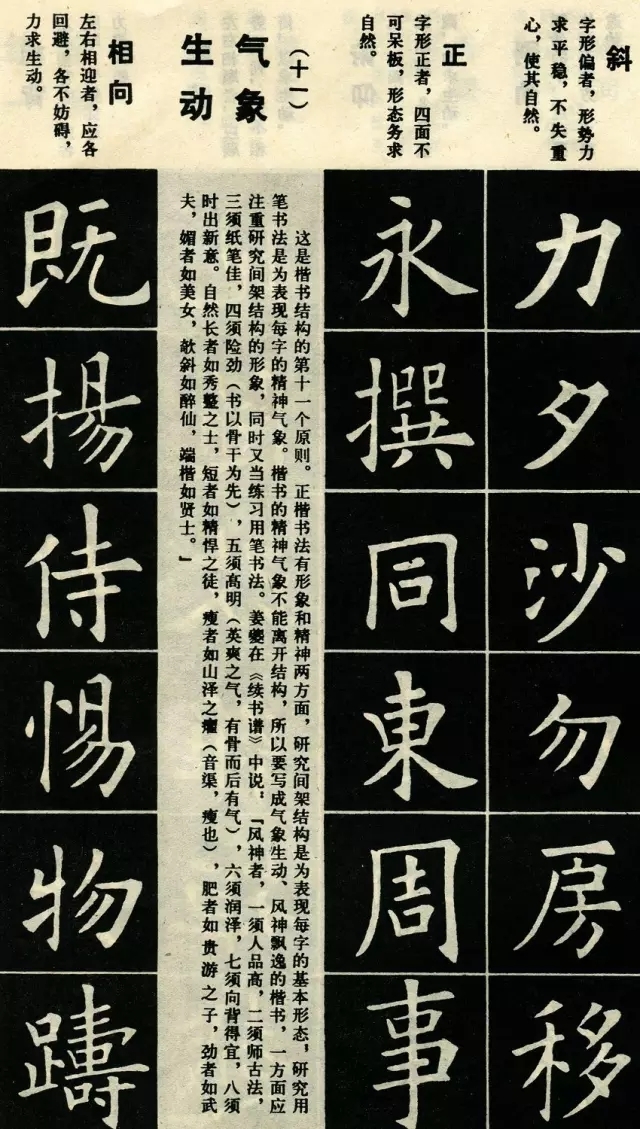 斜
字形偏者，形势力
求平稳，不失重
心，使其自然。
力
夕
沙
勿
房
移
正
字形正者，四面不
可呆板，形态务求
自然。
永
撰
同
東
周
事
（十一）
气象
生动
这是楷书结构的第十一个原则。正楷书法有形象和精神两方面，研究间架结构是为表现每字的基本形态，研究用
笔书法是为表现每字的精神气象。楷书的精神气象不能离开结构，所以要写成气象生动、风神飘逸的楷书，一方面应
注重研究间架结构的形象，同时又当练习用笔书法。姜夔在《续书谱》中说：「风神者，一须人品高，二须师古法，
三须纸笔佳，四须险劲（书以骨干为先），五须高明（英爽之气，有骨而后有气），六须润泽，七须向背得宜，八须
时出新意。自然长者如秀整之士，短者如精悍之徒，瘦者如山泽之癯（音渠，瘦也），肥者如贵游之子，劲者如武
夫，媚者如美女，欹斜如醉仙，端楷如贤士。」
相向
左右相迎者，应各
回避，各不妨碍，
力求生动。
既
揚
侍
惕
物
躊